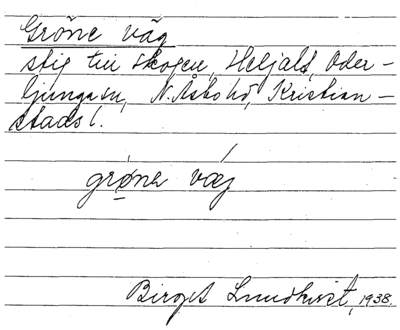 Gröne väg
stig till skogen, Heljalt, Oder-
ljunga sn, N. Åsbo hd, Kristian-
stads l.
grønɘ væg
Birget Lundkvist, 1938.